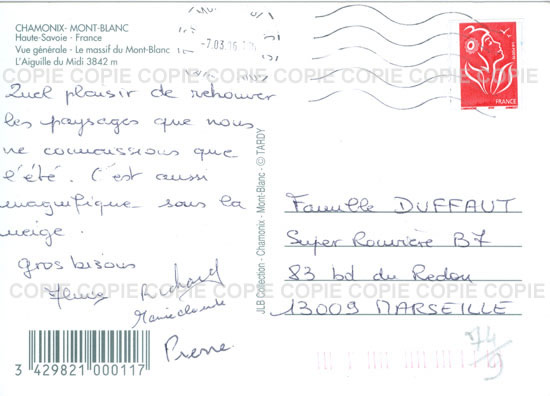 CHAMONIX - MONT-BLANC
Haute-Savoie - France
Vue générale - Le massif du Mont-Blanc
L'Aiguille du Midi 3842 m
-7.03.06
LA POSTE
FRANCE
COPIE COPIE COPIE COPIE COPIE COPIE COPIE
Quel plaisir de retrouver
les paysages que nous
ne connaissions que
l'été. C'est aussi
magnifique sous la
neige.
gros bisous
Richard
Marie claude
Pierre
3 429821 000117
JLB Collection - Chamonix - Mont-Blanc - © TARDY
Famille DUFFAUT
Super Rouvière B7
83 bd du Redon
13009 MARSEILLE
COPIE COPIE COPIE COPIE COPIE COPIE COPIE
74